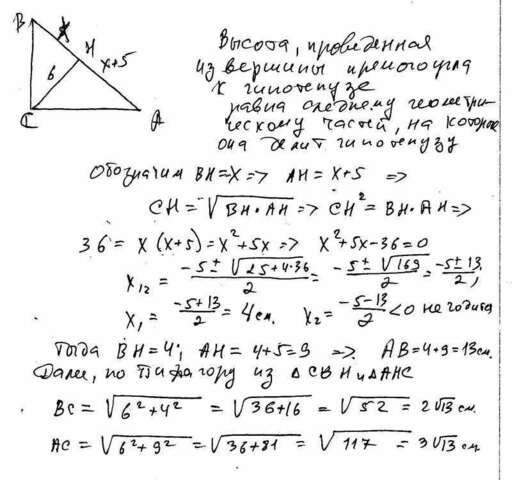 B
x
H
x+5
6
C
A
Высота, проведенная
из вершины прямого угла
к гипотенузе
равна среднему геометри-
ческому частей, на которые
она делит гипотенузу
Обозначим BH=x => AH=x+5 =>
CH=√BH·AH => CH²=BH·AH =>
36= x(x+5)=x²+5x => x²+5x-36=0
x₁₂ = -5±√25+4·36/2 = -5±√169/2 = -5±13/2;
x₁= -5+13/2 = 4см. x₂= -5-13/2 <0 не годится
Тогда BH=4; AH=4+5=9 => AB=4+9=13см.
Далее, по Пифагору из △CBH и △AHC
BC = √6²+4² = √36+16 = √52 = 2√13 см.
AC = √6²+9² = √36+81 = √117 = 3√13 см